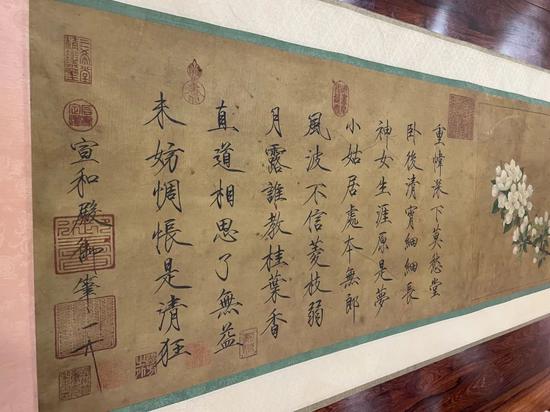 重幃深下莫愁堂
卧後清宵細細長
神女生涯原是夢
小姑居處本無郎
風波不信菱枝弱
月露誰教桂葉香
直道相思了無益
未妨惆悵是清狂
宣和殿御筆
三希堂精鑑璽
宜子孫